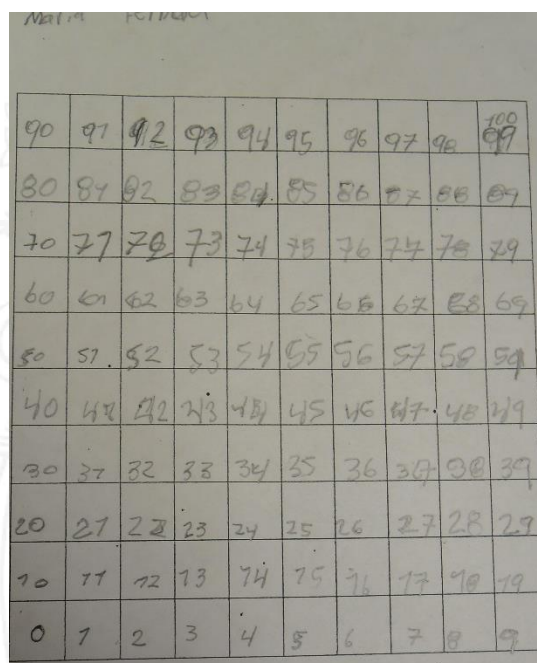 90 91 92 93 94 95 96 97 98 99 100
80 81 82 83 84 85 86 87 88 89
70 71 72 73 74 75 76 77 78 79
60 61 62 63 64 65 66 67 68 69
50 51 52 53 54 55 56 57 58 59
40 41 42 43 44 45 46 47 48 49
30 31 32 33 34 35 36 37 38 39
20 21 22 23 24 25 26 27 28 29
10 11 12 13 14 15 16 17 18 19
0 1 2 3 4 5 6 7 8 9